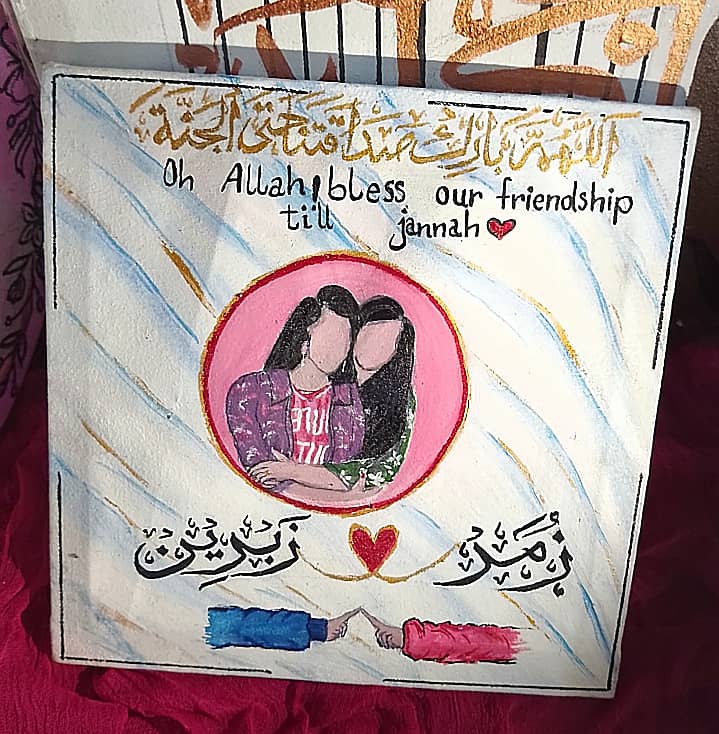 اللهم بارك صداقتنا حتى الجنة
Oh Allah, bless our friendship
till jannah
زُمَر
زَبَرِين